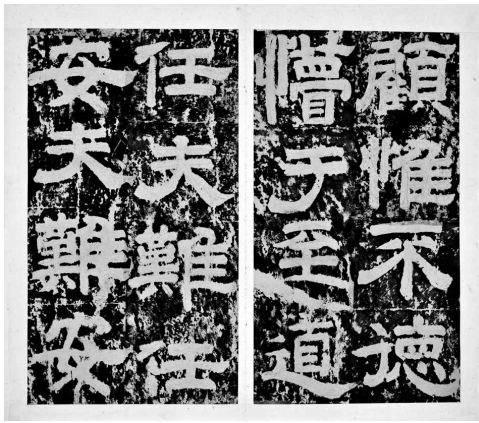 顧惟不德
懵于至道
任夫難任
安夫難安